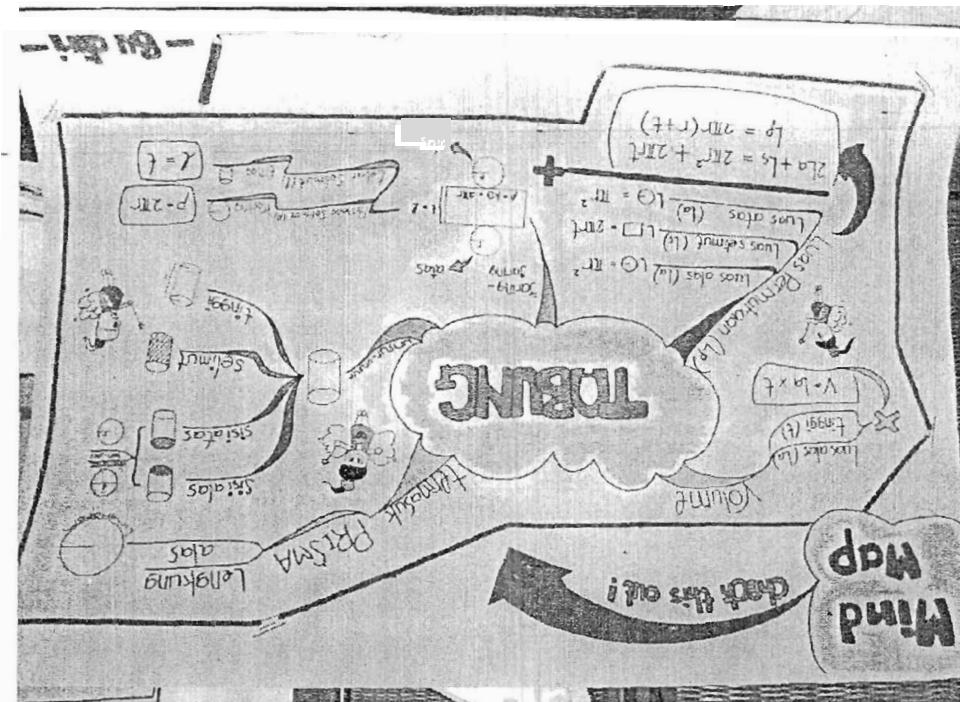 Mind
Map
check this out!
TABUNG
Volume
Luas alas (La)
tinggi (t)
V = La x t
Luas Permukaan (Lp)
Luas alas (La) L○ = πr²
Luas selimut (Ls) L□ = 2πrt
Luas atas (La) L○ = πr²
+
2La + Ls = 2πr² + 2πrt
Lp = 2πr (r + t)
jaring-
jaring
alas
p = 2πr
l = t
termasuk
PRISMA
Lengkung
alas
sisi alas
sisi atas
selimut
tinggi